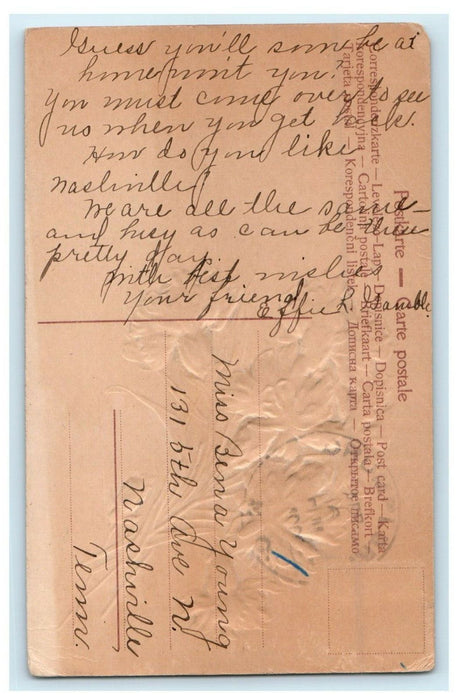 Guess you'll soon be at
home won't you?
You must come over to see
us when you get back.
How do you like
Nashville?
We are all the same
and busy as can be these
pretty days.
With best wishes
Your friend
Effie R.
Postkarte — Carte postale
Correspondenzkarte — Levelező-Lap — Dopisnice — Dopisnica — Post card — Karta
Korespondencyjna — Cartolina postale — Briefkaart — Carta postala — Brefkort —
Tarjeta postal — Korespondenční lístek — Дописна карта — Открытое письмо
Miss Bena Young
131 5th Ave N.
Nashville
Tenn.